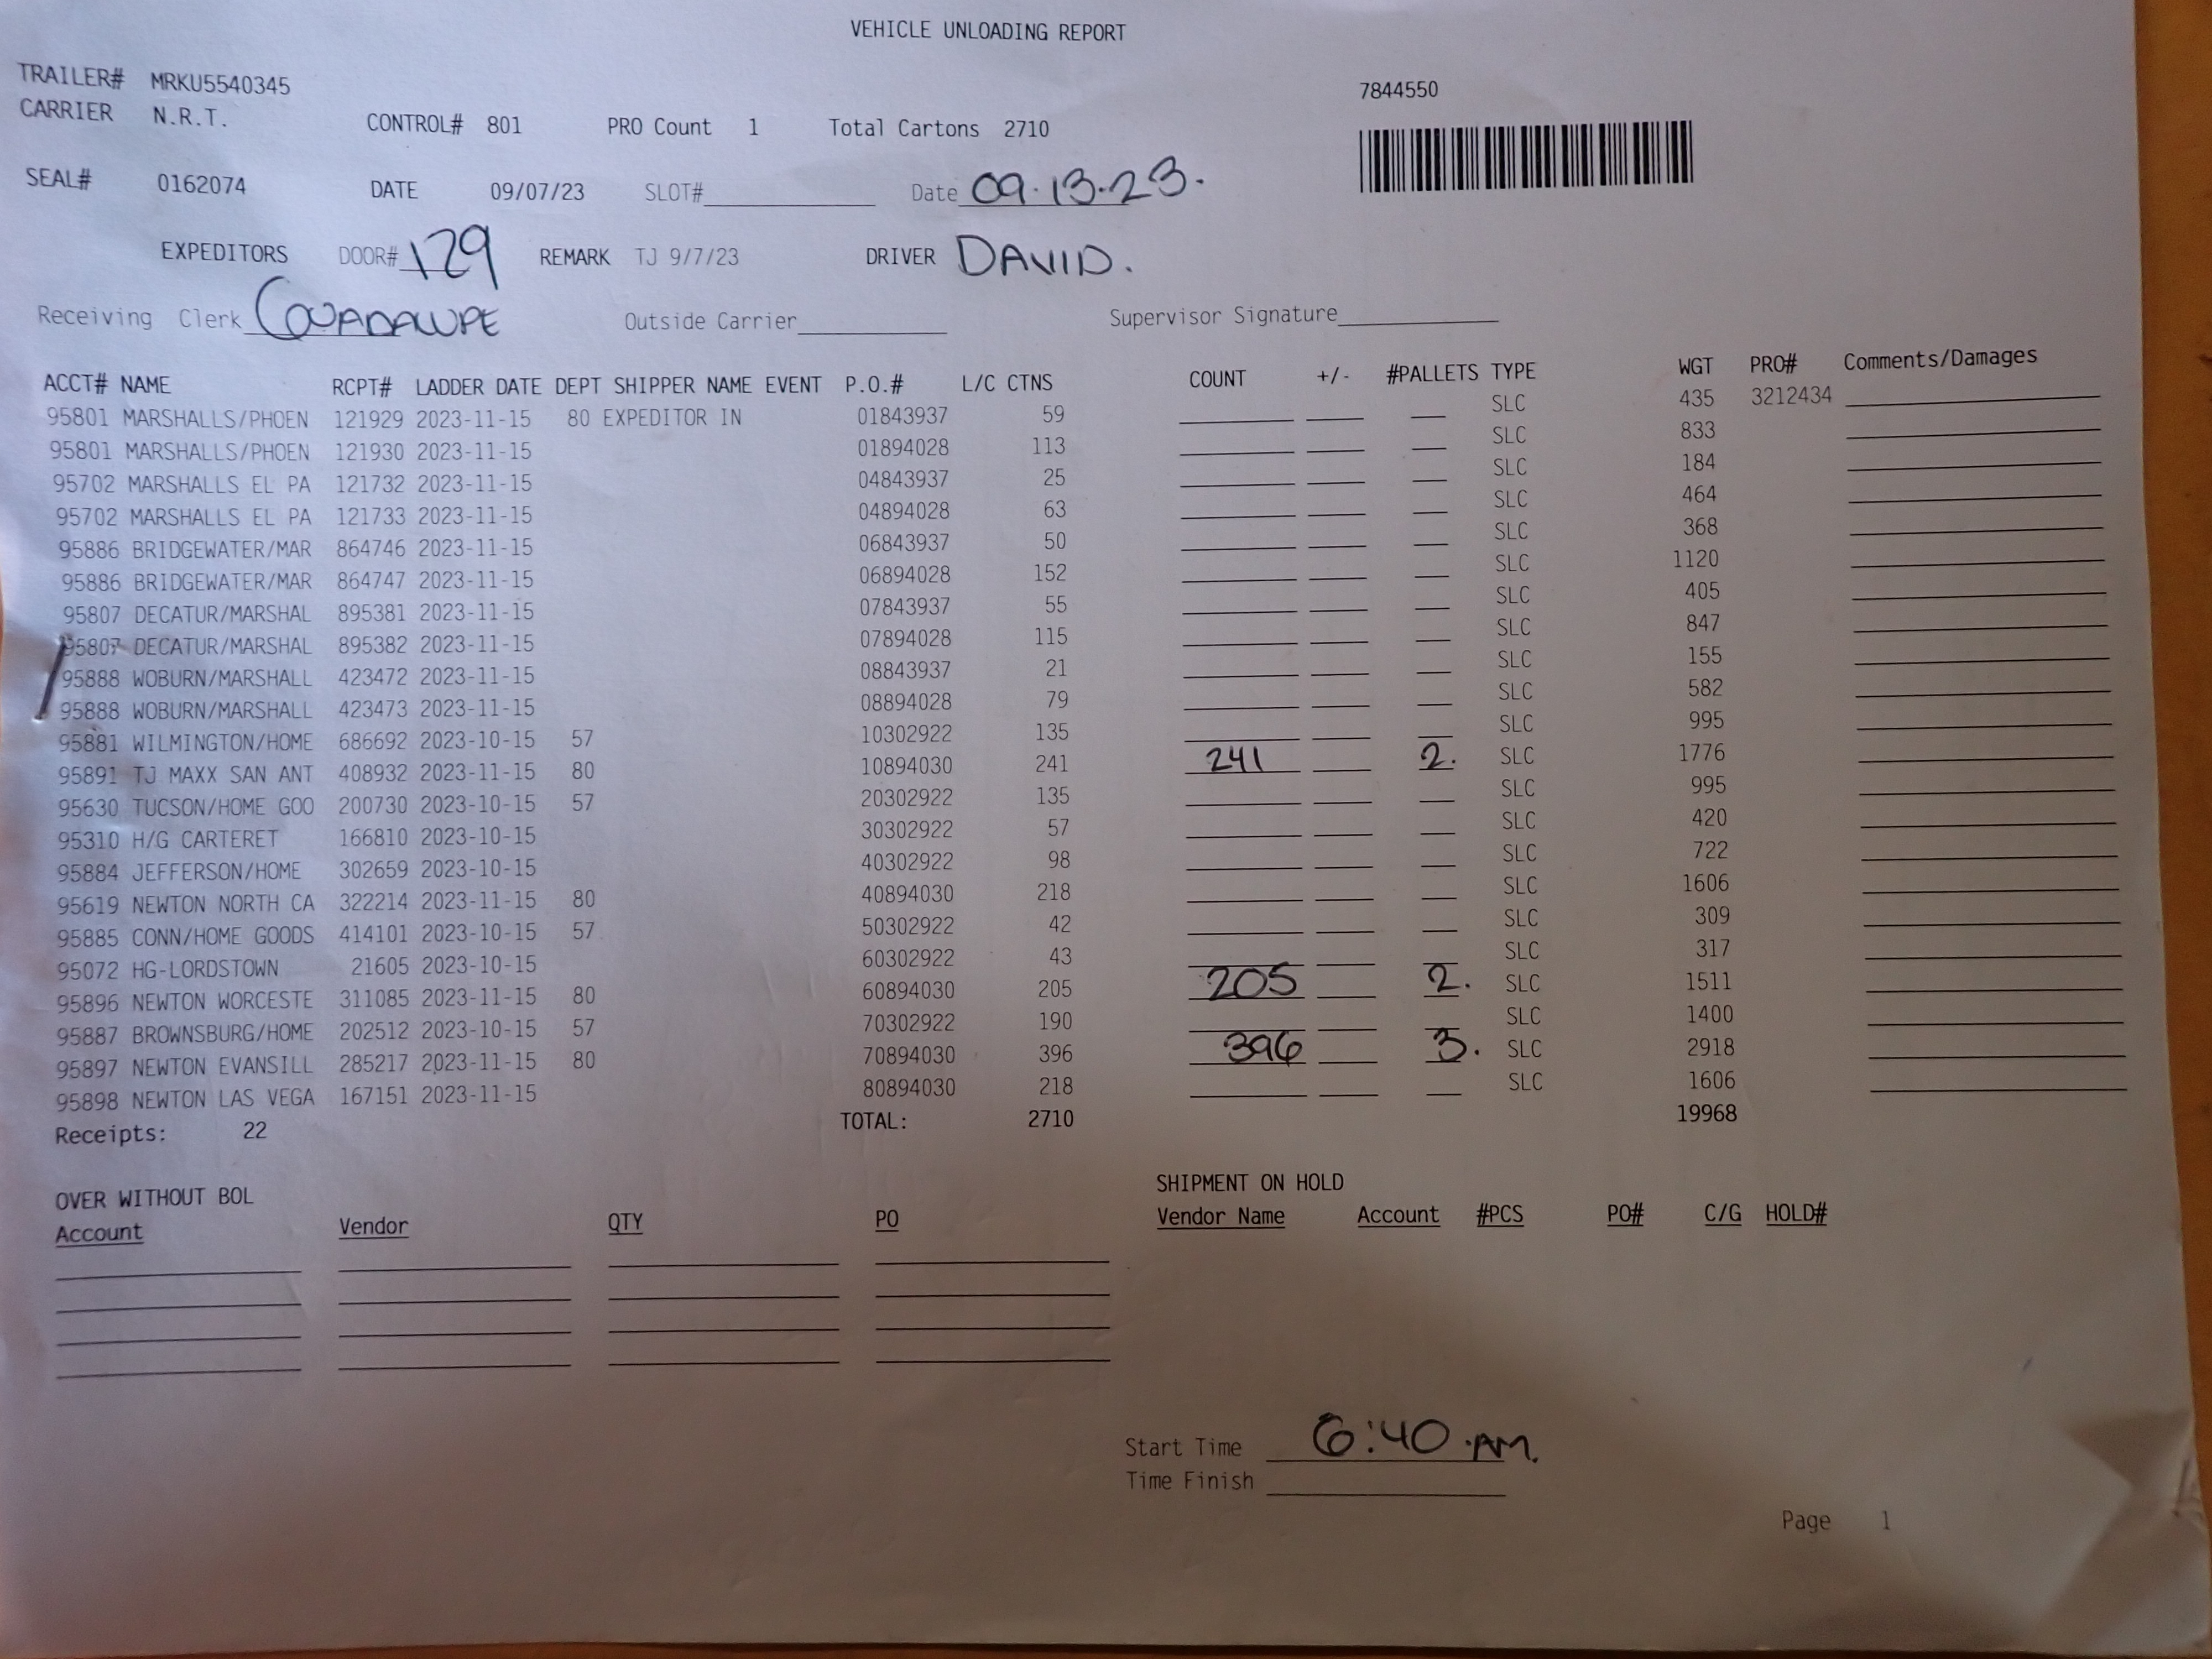 VEHICLE UNLOADING REPORT
TRAILER# MRKU5540345
7844550
CARRIER N.R.T. CONTROL# 801 PRO Count 1 Total Cartons 2710
SEAL# 0162074 DATE 09/07/23 SLOT# Date 09.13.23.
EXPEDITORS DOOR# 129 REMARK TJ 9/7/23 DRIVER DAVID.
Receiving Clerk GUADALUPE Outside Carrier Supervisor Signature
ACCT# NAME RCPT# LADDER DATE DEPT SHIPPER NAME EVENT P.O.# L/C CTNS COUNT +/- #PALLETS TYPE WGT PRO# Comments/Damages
95801 MARSHALLS/PHOEN 121929 2023-11-15 80 EXPEDITOR IN 01843937 59 SLC 435 3212434
95801 MARSHALLS/PHOEN 121930 2023-11-15 01894028 113 SLC 833
95702 MARSHALLS EL PA 121732 2023-11-15 04843937 25 SLC 184
95702 MARSHALLS EL PA 121733 2023-11-15 04894028 63 SLC 464
95886 BRIDGEWATER/MAR 864746 2023-11-15 06843937 50 SLC 368
95886 BRIDGEWATER/MAR 864747 2023-11-15 06894028 152 SLC 1120
95807 DECATUR/MARSHAL 895381 2023-11-15 07843937 55 SLC 405
95807 DECATUR/MARSHAL 895382 2023-11-15 07894028 115 SLC 847
95888 WOBURN/MARSHALL 423472 2023-11-15 08843937 21 SLC 155
95888 WOBURN/MARSHALL 423473 2023-11-15 08894028 79 SLC 582
95881 WILMINGTON/HOME 686692 2023-10-15 57 10302922 135 SLC 995
95891 TJ MAXX SAN ANT 408932 2023-11-15 80 10894030 241 241 2. SLC 1776
95630 TUCSON/HOME GOO 200730 2023-10-15 57 20302922 135 SLC 995
95310 H/G CARTERET 166810 2023-10-15 30302922 57 SLC 420
95884 JEFFERSON/HOME 302659 2023-10-15 40302922 98 SLC 722
95619 NEWTON NORTH CA 322214 2023-11-15 80 40894030 218 SLC 1606
95885 CONN/HOME GOODS 414101 2023-10-15 57 50302922 42 SLC 309
95072 HG-LORDSTOWN 21605 2023-10-15 60302922 43 SLC 317
95896 NEWTON WORCESTE 311085 2023-11-15 80 60894030 205 205 2. SLC 1511
95887 BROWNSBURG/HOME 202512 2023-10-15 57 70302922 190 SLC 1400
95897 NEWTON EVANSILL 285217 2023-11-15 80 70894030 396 396 3. SLC 2918
95898 NEWTON LAS VEGA 167151 2023-11-15 80894030 218 SLC 1606
Receipts: 22 TOTAL: 2710 19968
OVER WITHOUT BOL SHIPMENT ON HOLD
Account Vendor QTY PO Vendor Name Account #PCS PO# C/G HOLD#
Start Time 6:40 .AM.
Time Finish
Page 1